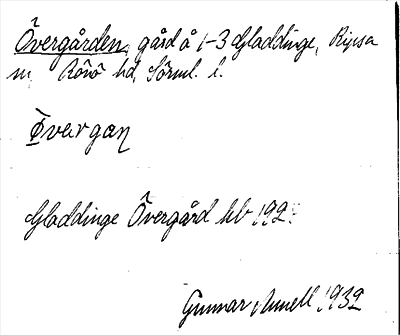 Övergården, gård å 1-3 Gladdinge, Ripsa
sn, Rönö hd, Sörml. l.
Övergaꞃ
Gladdinge Övergård hb 192
Gunnar 1932